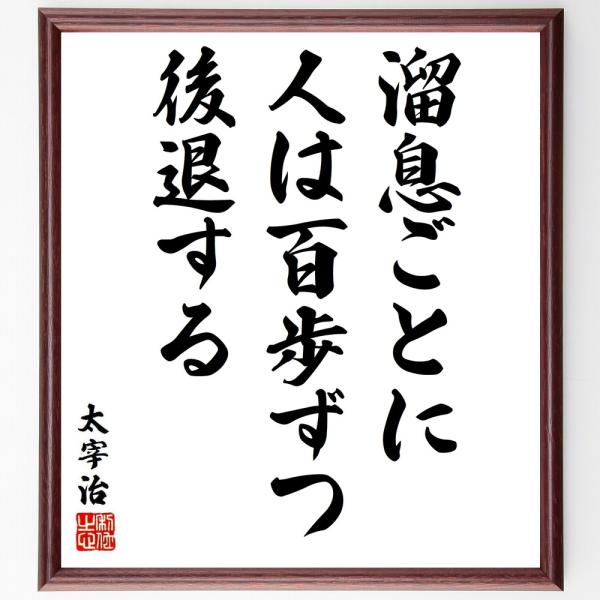 溜息ごとに
人は百歩ずつ
後退する
太宰治